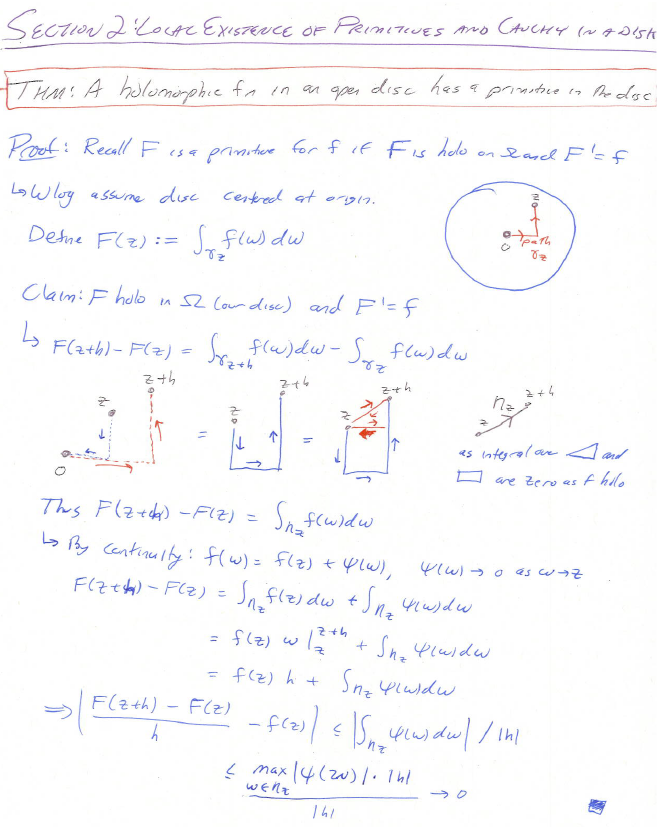 SECTION 2: LOCAL EXISTENCE OF PRIMITIVES AND CAUCHY IN A DISK
THM: A holomorphic fn in an open disc has a primitive in the disc
Proof: Recall F is a primitive for f if F is holo on Ω and F' = f
↳ Wlog assume disc centred at origin.
Define F(z) := ∫_{γ_z} f(w) dw
z
0
path
γ_z
Claim: F holo in Ω (our disc) and F' = f
↳ F(z+h) - F(z) = ∫_{γ_{z+h}} f(w)dw - ∫_{γ_z} f(w)dw
z z+h 0 = z z+h = z z+h z η_z z+h
as integral over △ and
□ are zero as f holo
Thus F(z+h) - F(z) = ∫_{η_z} f(w)dw
↳ By continuity: f(w) = f(z) + ψ(w), ψ(w) → 0 as w→z
F(z+h) - F(z) = ∫_{η_z} f(z) dw + ∫_{η_z} ψ(w)dw
= f(z) w |_z^{z+h} + ∫_{η_z} ψ(w)dw
= f(z) h + ∫_{η_z} ψ(w)dw
⇒ | (F(z+h) - F(z))/h - f(z) | ≤ | ∫_{η_z} ψ(w) dw | / |h|
≤ max_{w∈η_z} |ψ(w)| · |h| / |h| → 0